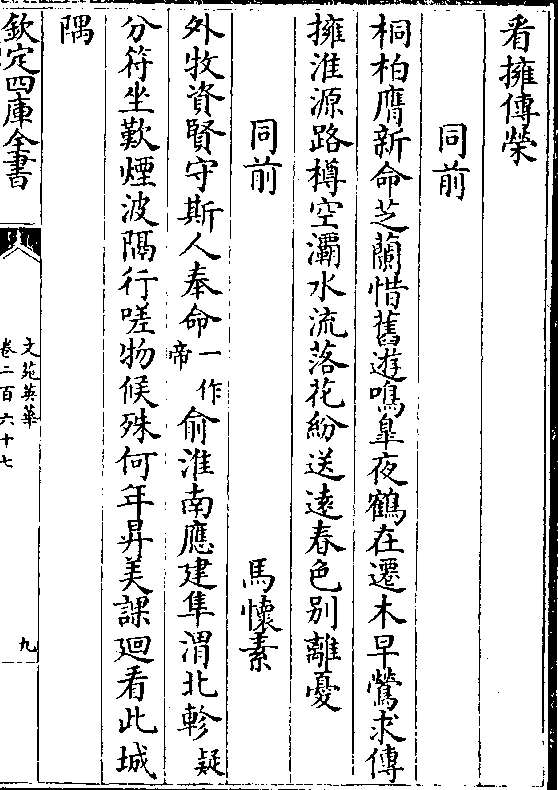 看擁傳榮
同前
桐柏膺新命芝蘭惜舊遊鳴臯夜鶴在遷木早鶯求傳
擁淮源路樽空灞水流落花紛送逺春色别離憂
同前 馬懷素
外牧資賢守斯人奉命一作帝俞淮南應建隼渭北軫疑
分符坐歎煙波隔行嗟物候殊何年昇美課廻看此城
隅
欽定四庫全書
文苑英華
卷二百六十七
九